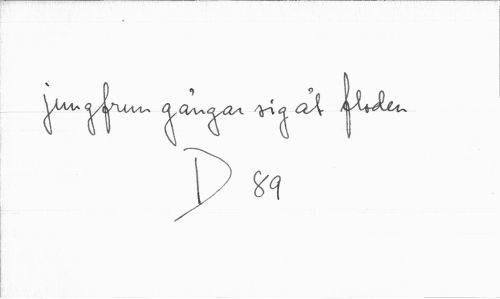 jungfrun gångar sig åt floden
D 89